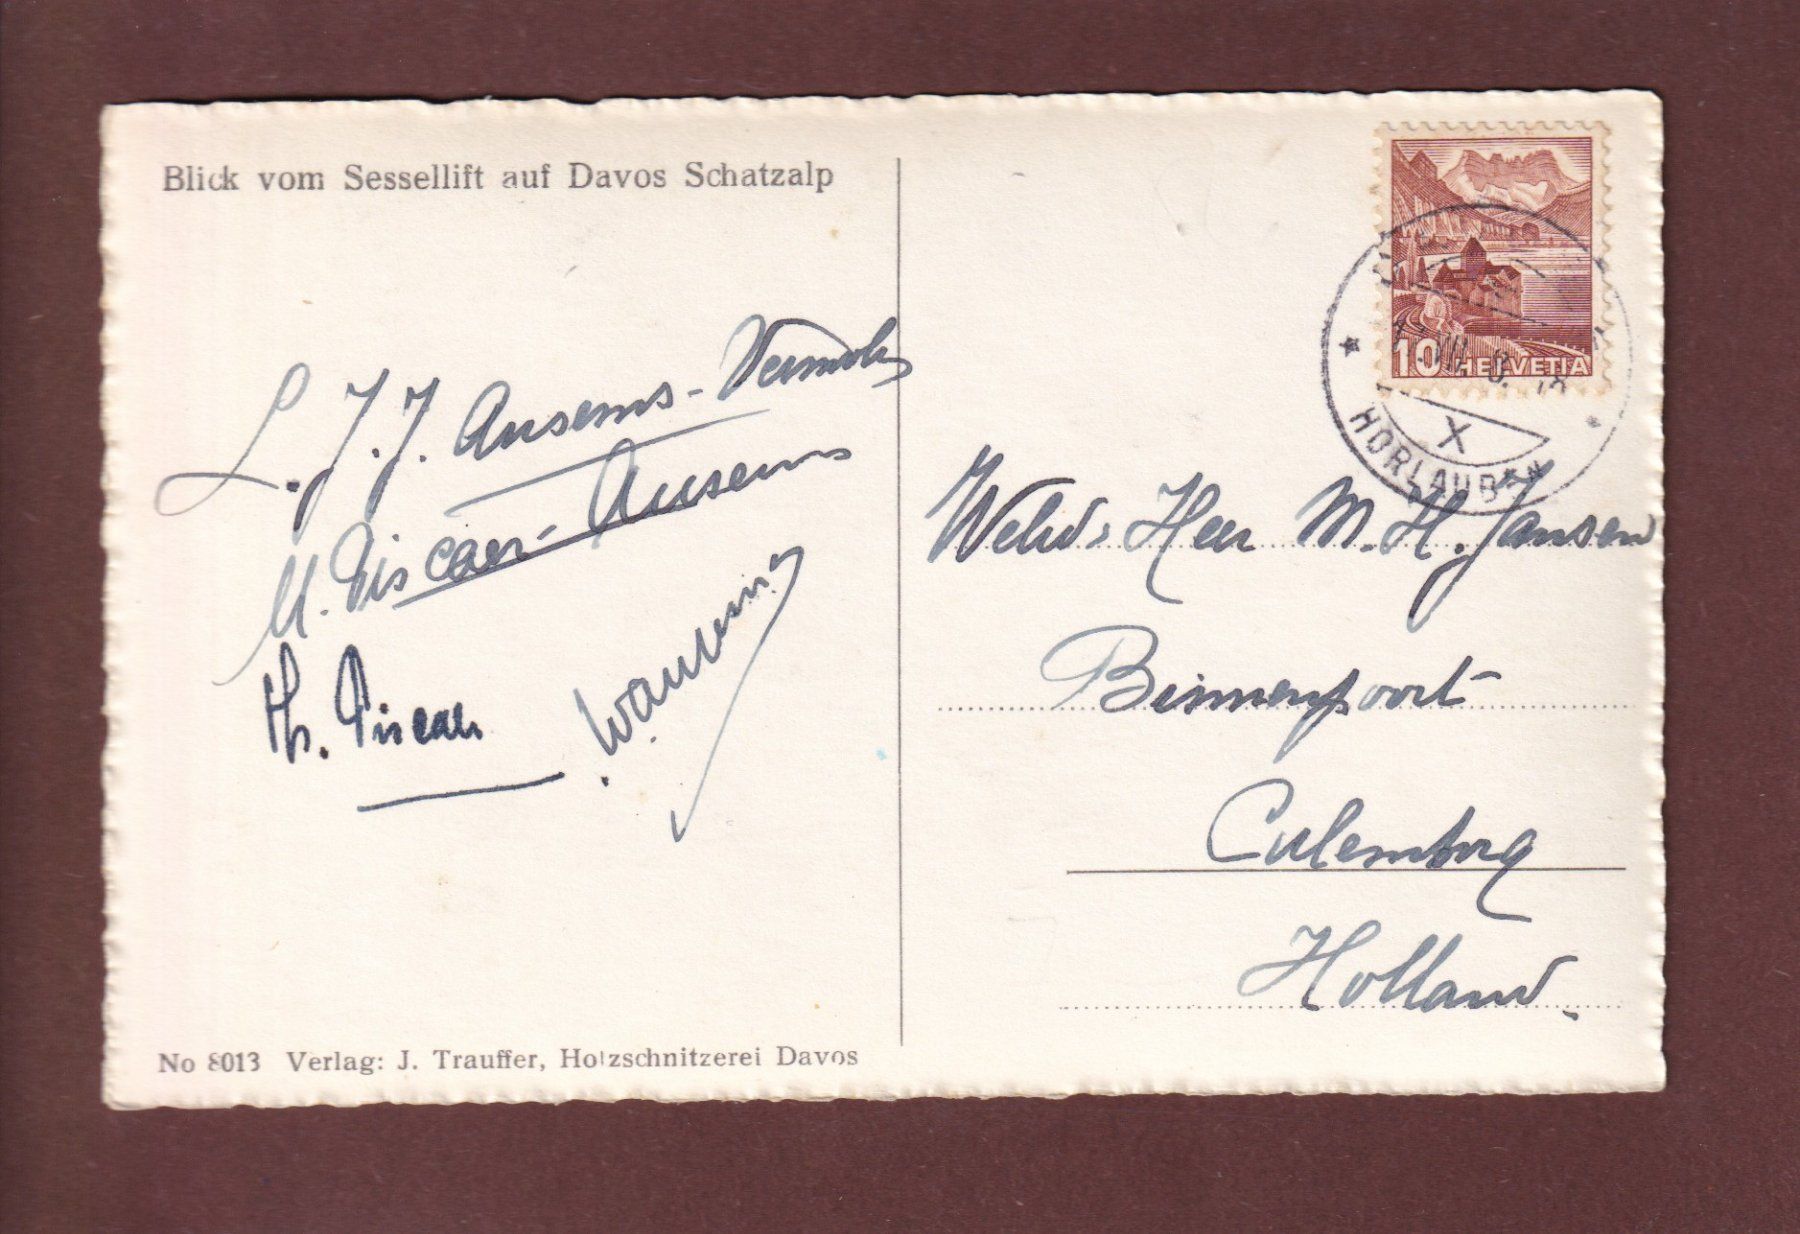 Blick vom Sessellift auf Davos Schatzalp
L. J. J. Ansems-
M. Piscaer-Ansems
Th. Piscaer
No 8013 Verlag: J. Trauffer, Holzschnitzerei Davos
10 HELVETIA
X
HORLAUBEN
Heer M. H. Jansen
Binnenpoort
Culemborg
Holland.